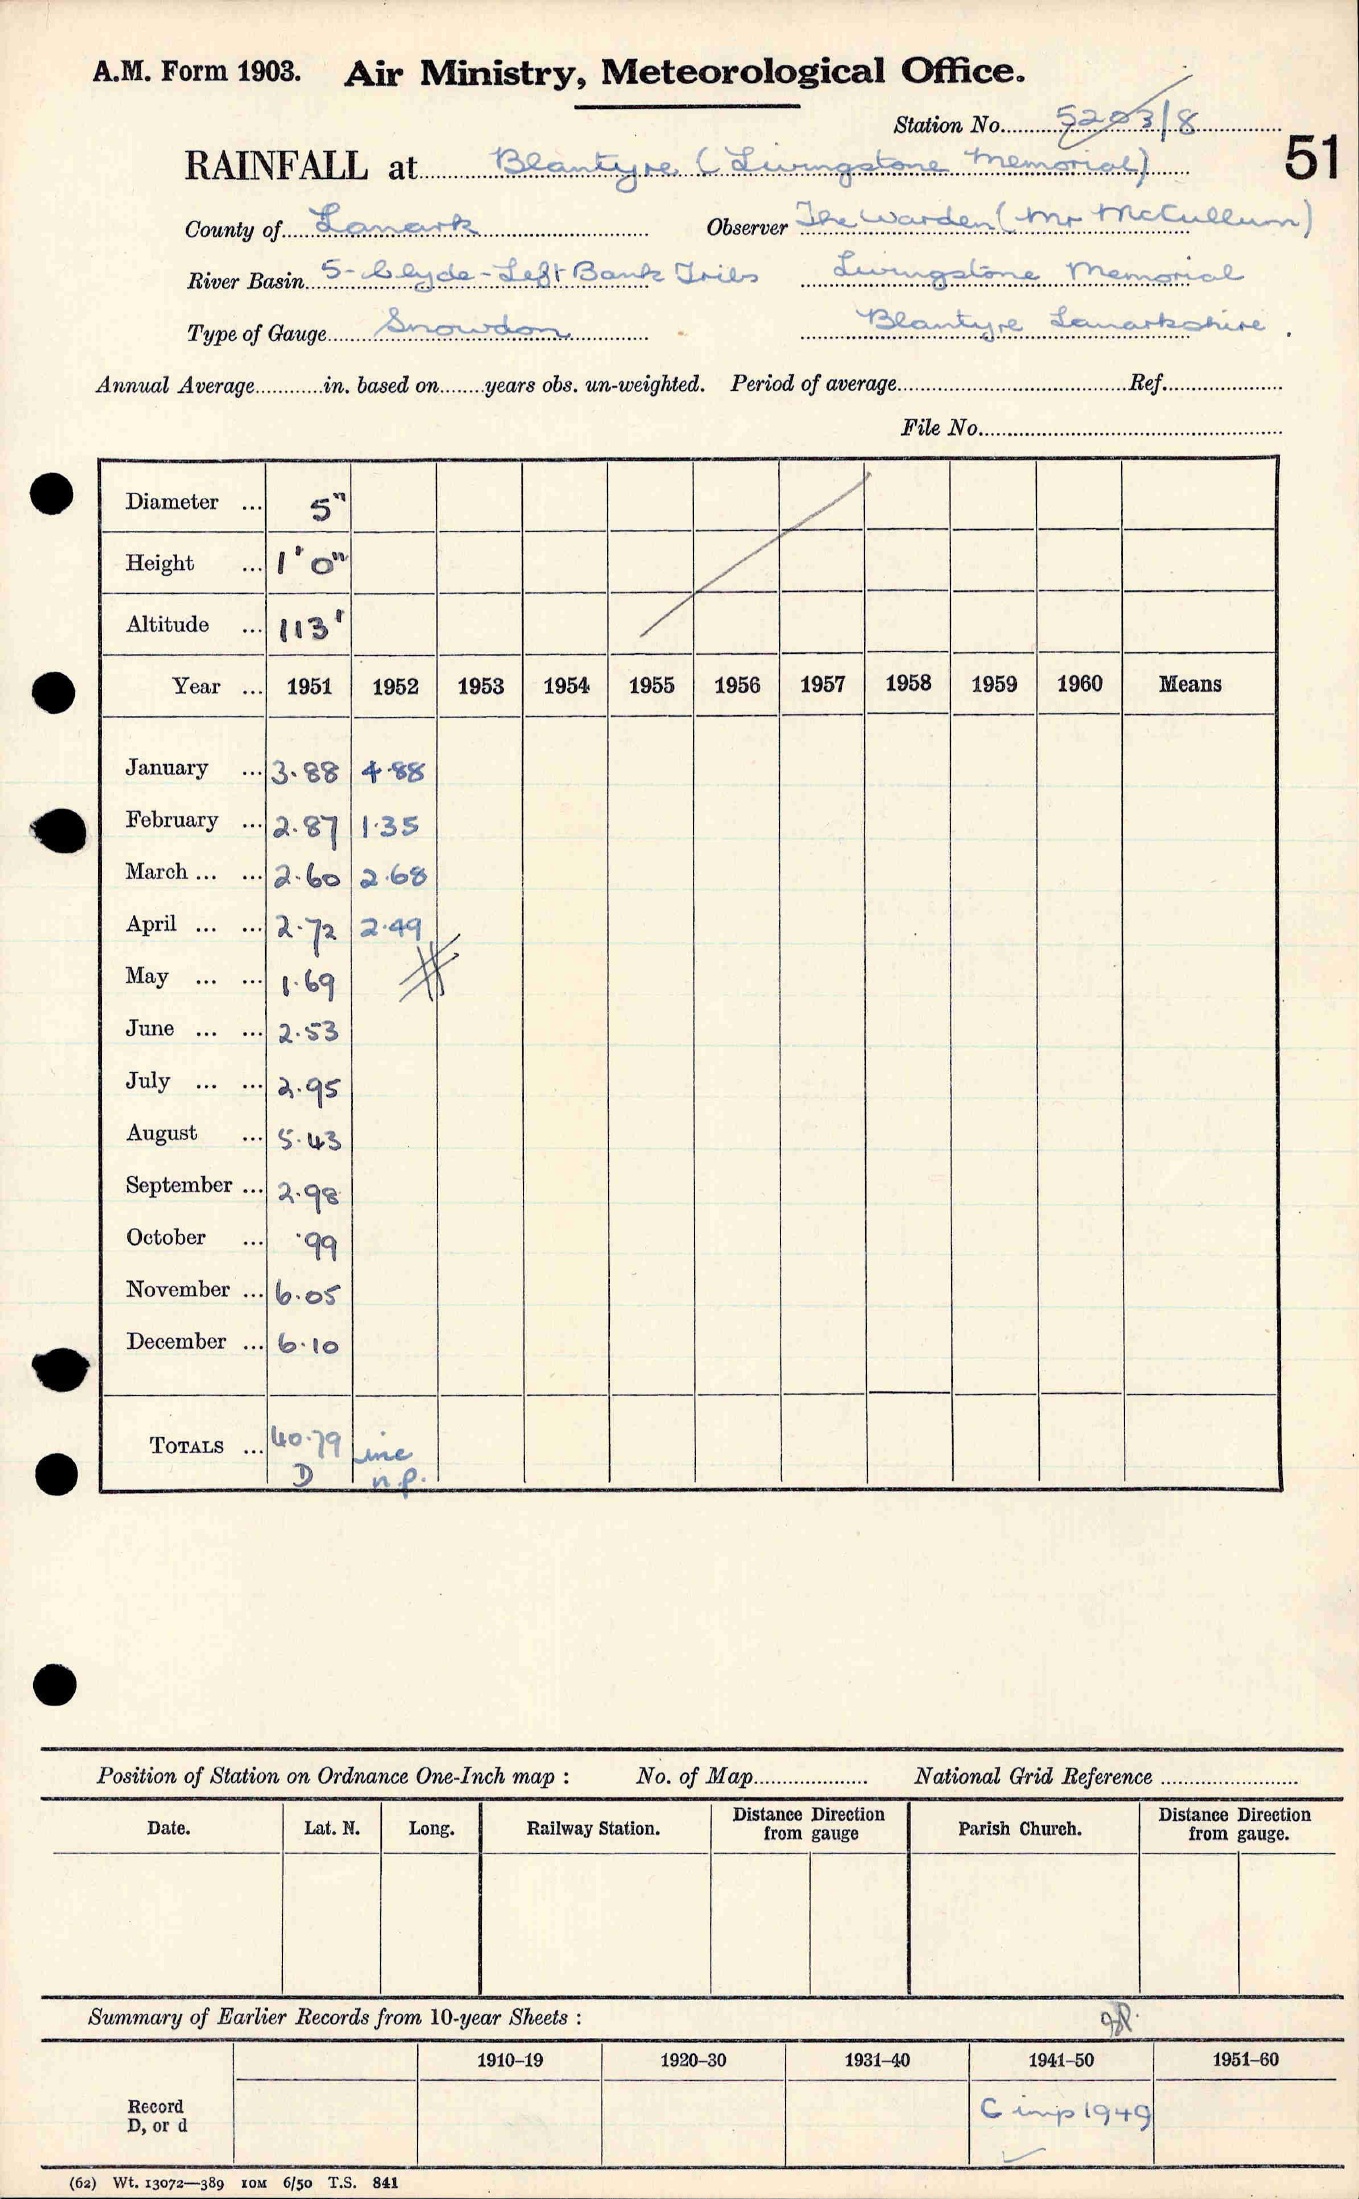 A.M. Form 1903. Air Ministry, Meteorological Office.
Station No. 5203/8
RAINFALL at Blantyre (Livingstone Memorial) 51
County of Lanark Observer The Warden (Mr McCullum)
River Basin 5-Clyde-Left Bank Tribs Livingstone Memorial
Type of Gauge Snowdon Blantyre Lanarkshire.
Annual Average in. based on years obs. un-weighted. Period of average Ref.
File No.
Diameter ... 5"
Height ... 1'0"
Altitude ... 113'
Year ... 1951 1952 1953 1954 1955 1956 1957 1958 1959 1960 Means
January ... 3.88 4.88
February ... 2.87 1.35
March ... ... 2.60 2.68
April ... ... 2.72 2.49
May ... ... 1.69
June ... ... 2.53
July ... ... 2.95
August ... 5.43
September ... 2.98
October ... .99
November ... 6.05
December ... 6.10
TOTALS ... 40.79 inc
D n.p.
Position of Station on Ordnance One-Inch map : No. of Map National Grid Reference
Date. Lat. N. Long. Railway Station. Distance Direction from gauge Parish Church. Distance Direction from gauge.
Summary of Earlier Records from 10-year Sheets :
1910–19 1920–30 1931–40 1941–50 1951–60
Record
D, or d C inp 1949
(62) Wt. 13072—389 10M 6/50 T.S. 841